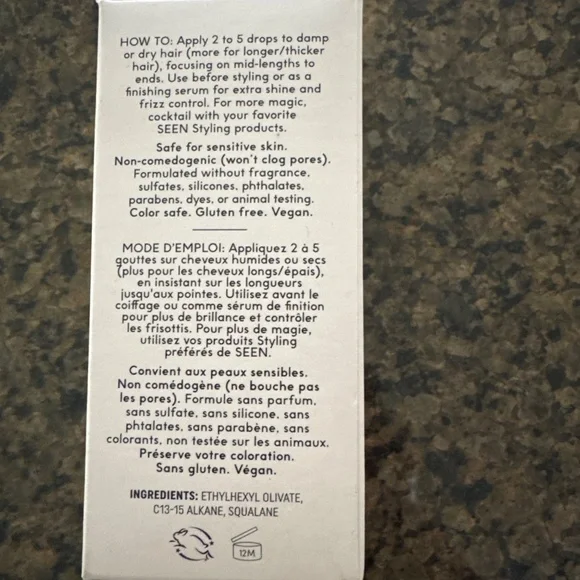 HOW TO: Apply 2 to 5 drops to damp
or dry hair (more for longer/thicker
hair), focusing on mid-lengths to
ends. Use before styling or as a
finishing serum for extra shine and
frizz control. For more magic,
cocktail with your favorite
SEEN Styling products.
Safe for sensitive skin.
Non-comedogenic (won't clog pores).
Formulated without fragrance,
sulfates, silicones, phthalates,
parabens, dyes, or animal testing.
Color safe. Gluten free. Vegan.
MODE D'EMPLOI: Appliquez 2 à 5
gouttes sur cheveux humides ou secs
(plus pour les cheveux longs/épais),
en insistant sur les longueurs
jusqu'aux pointes. Utilisez avant le
coiffage ou comme sérum de finition
pour plus de brillance et contrôler
les frisottis. Pour plus de magie,
utilisez vos produits Styling
préférés de SEEN.
Convient aux peaux sensibles.
Non comédogène (ne bouche pas
les pores). Formule sans parfum,
sans sulfate, sans silicone, sans
phtalates, sans parabène, sans
colorants, non testée sur les animaux.
Préserve votre coloration.
Sans gluten. Végan.
INGREDIENTS: ETHYLHEXYL OLIVATE,
C13-15 ALKANE, SQUALANE
12M